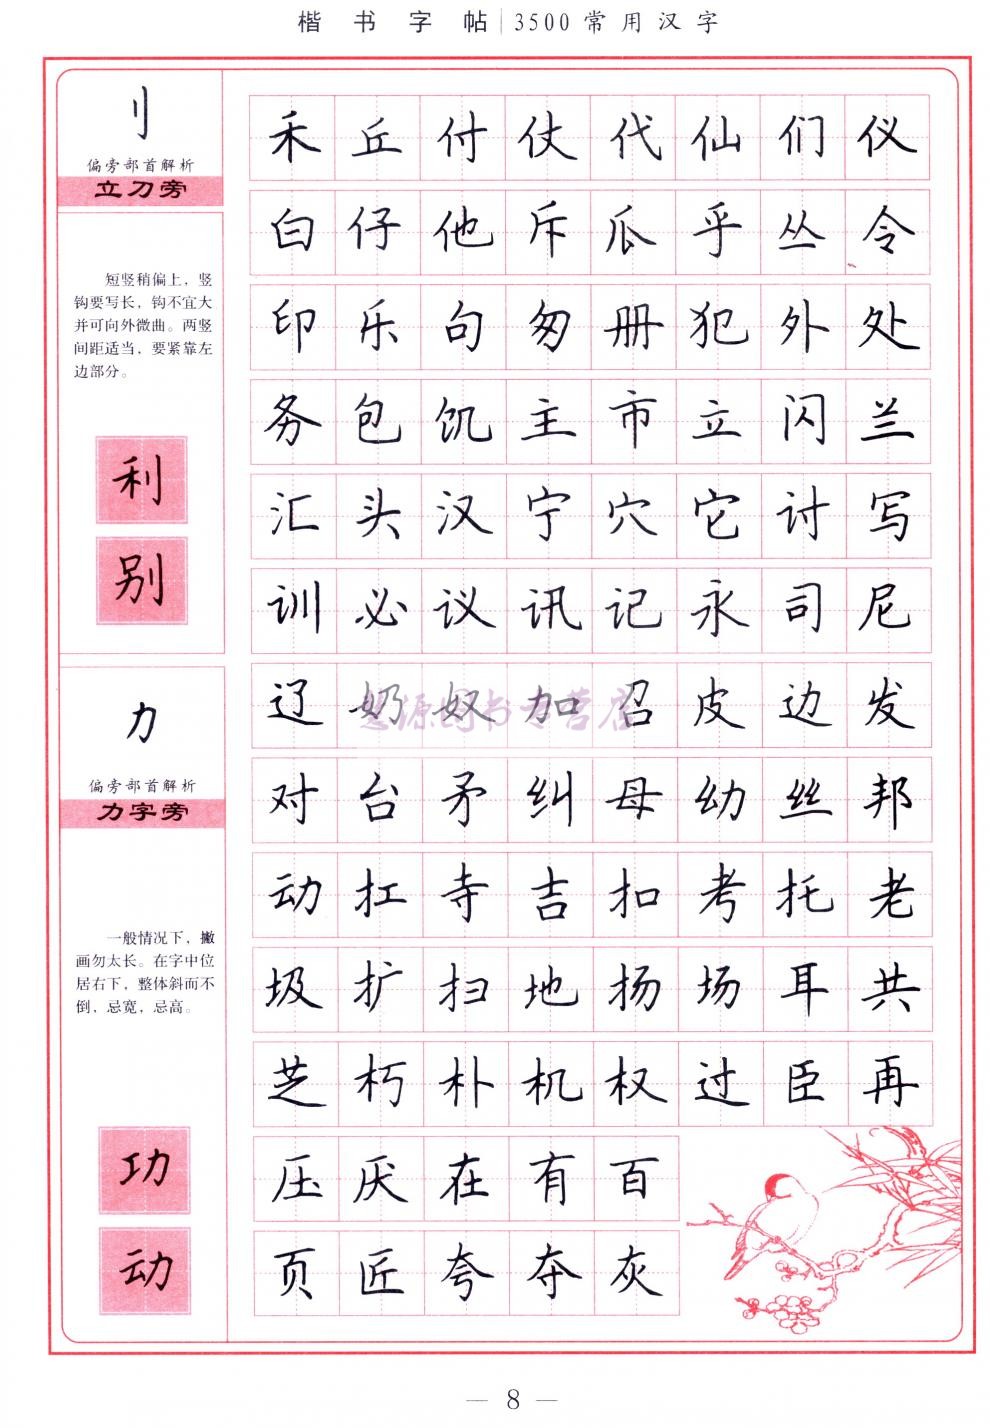 楷书字帖 3500常用汉字
刂
偏旁部首解析
立刀旁
短竖稍偏上，竖
钩要写长，钩不宜大
并可向外微曲。两竖
间距适当，要紧靠左
边部分。
利
别
力
偏旁部首解析
力字旁
一般情况下，撇
画勿太长。在字中位
居右下，整体斜而不
倒，忌宽，忌高。
功
动
禾丘付仗代仙们仪
白仔他斥瓜乎丛令
印乐句匆册犯外处
务包饥主市立闪兰
汇头汉宁穴它讨写
训必议讯记永司尼
辽奶奴加召皮边发
对台矛纠母幼丝邦
动扛寺吉扣考托老
圾扩扫地扬场耳共
芝朽朴机权过臣再
压厌在有百
页匠夸夺灰
— 8 —